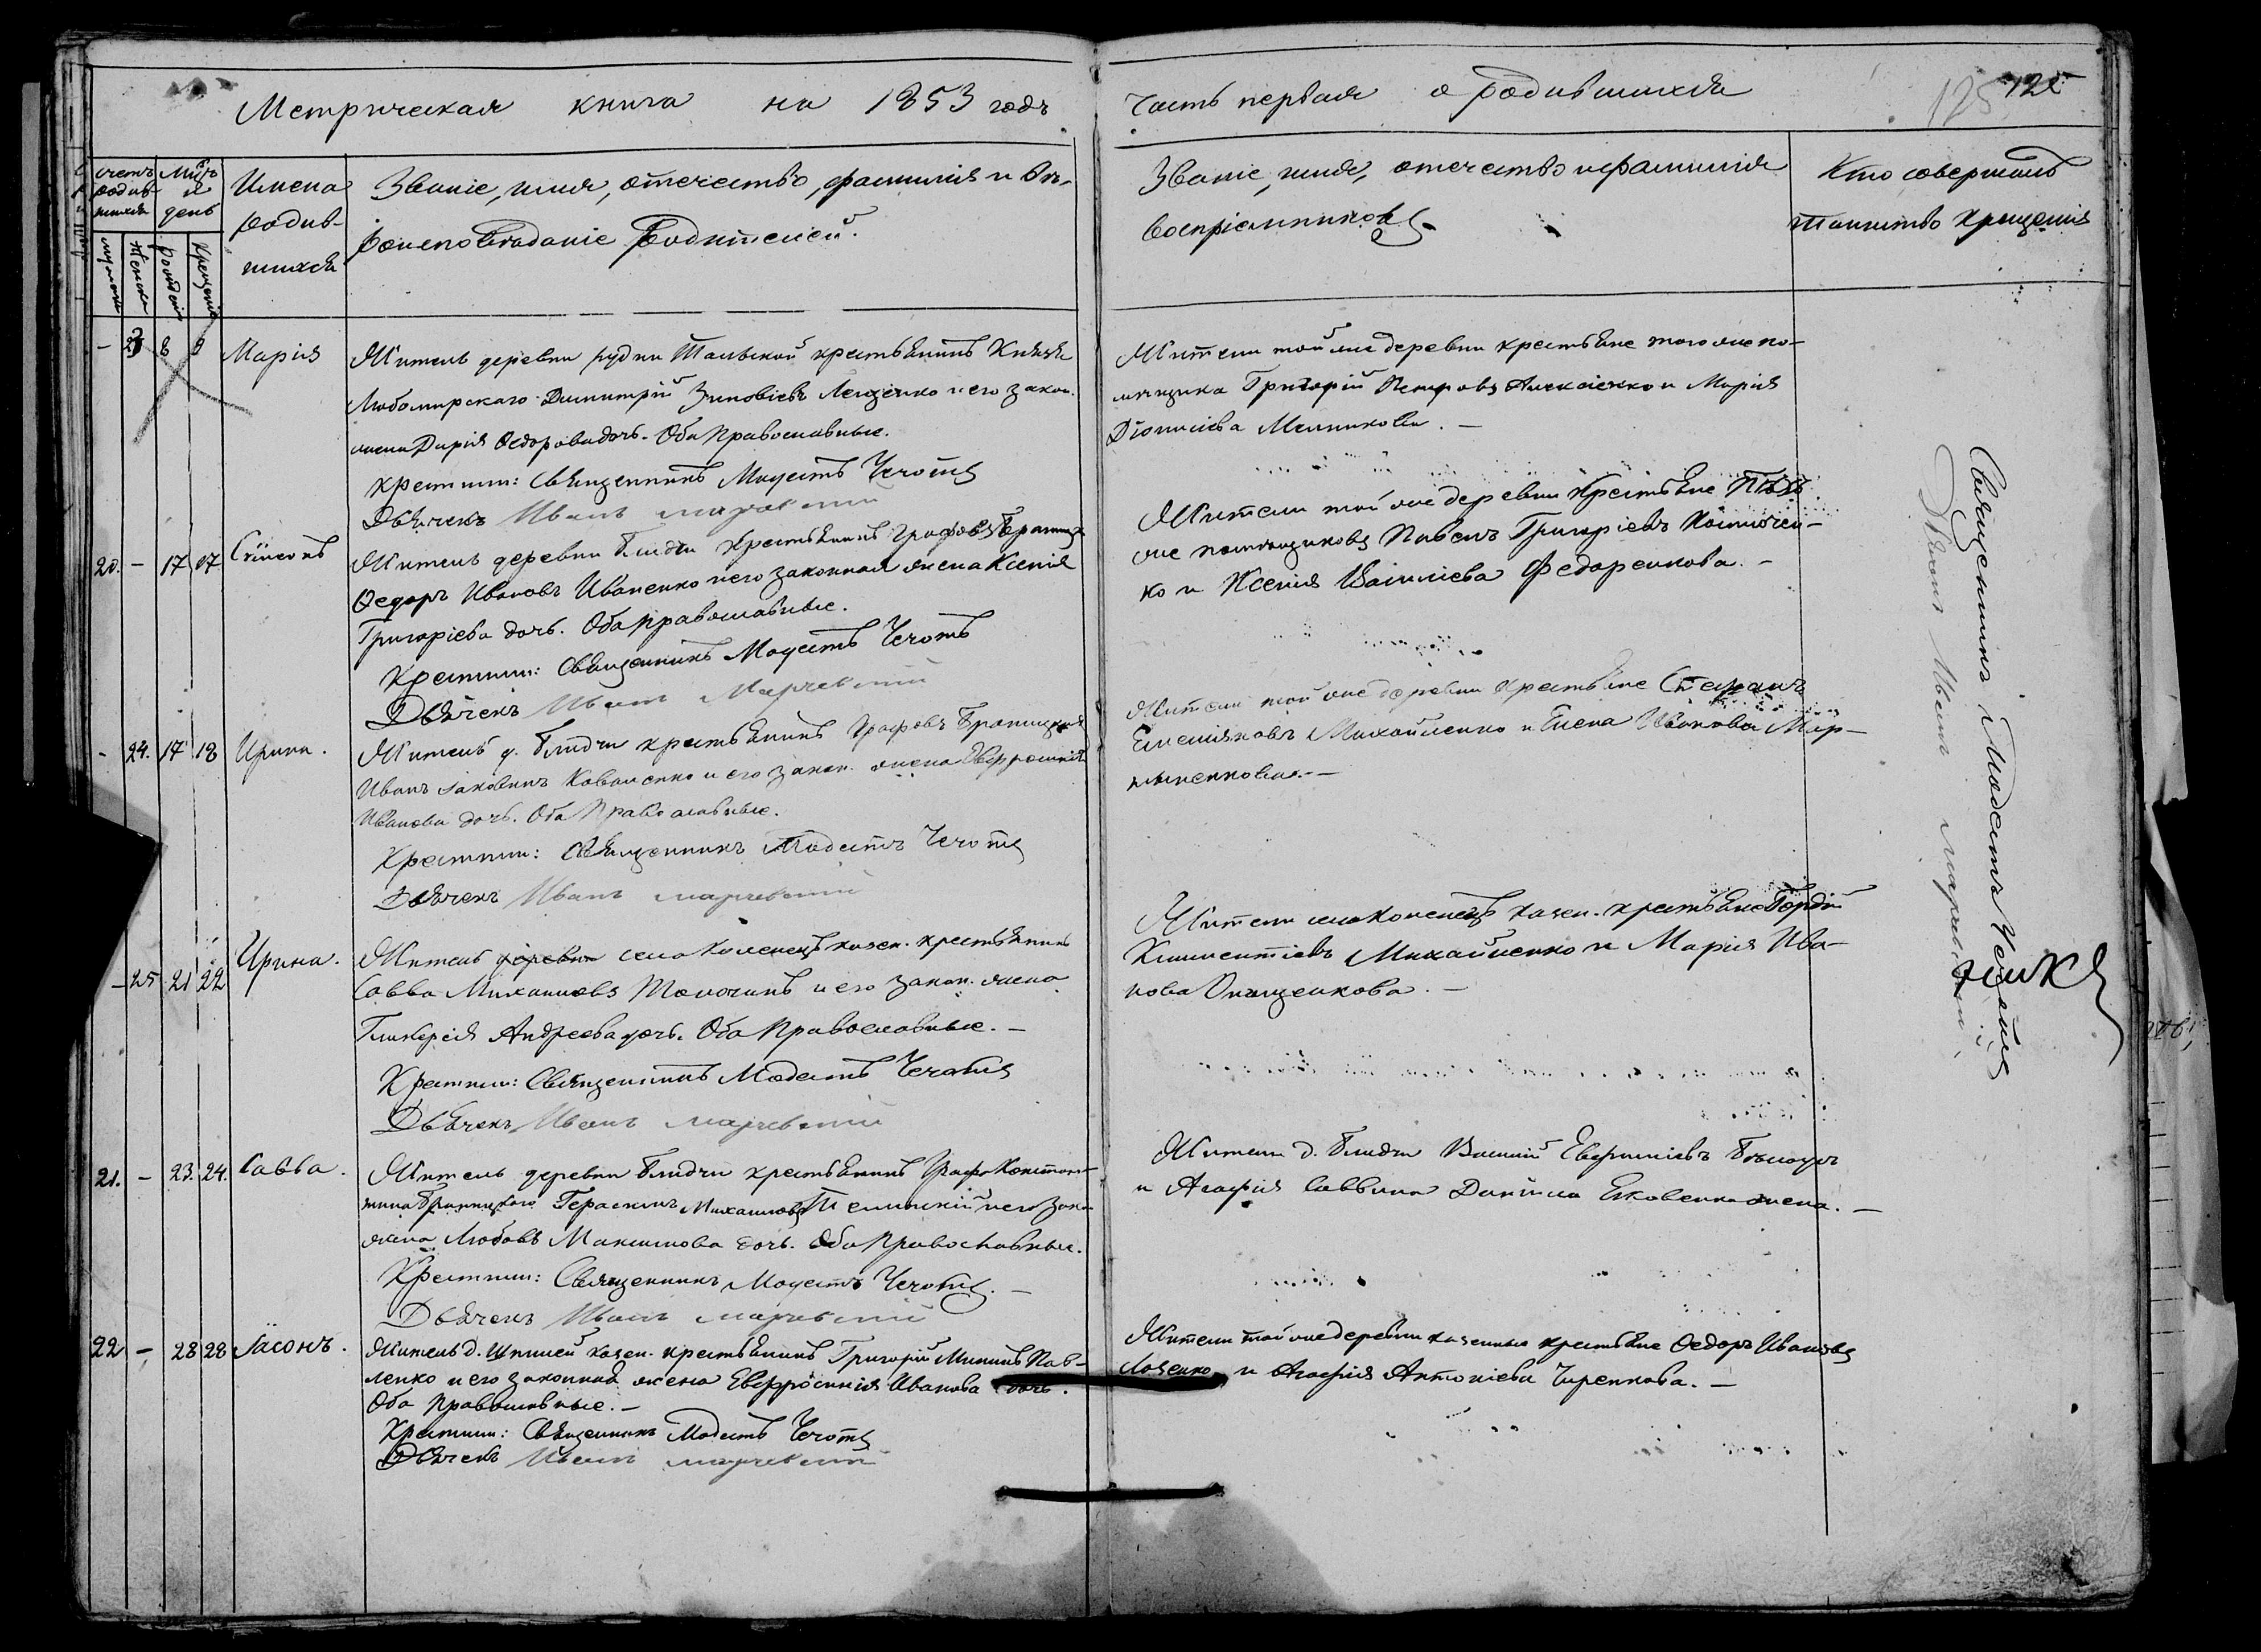 Метрическая книга на 1853 годъ
Часть первая о родившихся
125 125
счетъ родив-шихся
Мѣц. и день
Имена родив-шихся
Званіе, имя, отечество, фамилія и Вѣ-
роисповѣданіе Родителей.
Званіе, имя, отечество и фамилія
воспріемниковъ
Кто совершалъ
таинство Крещенія
мужеска
женска
рожденія
крещенія
- 23 8 9 Марія
Житель деревни рудни Тальской крестьянинъ Князя
Любомирскаго Димитрій Зиновіевъ Лещенко и его закон.
жена Дарія Ѳедорова дочь. Оба Православные.
крестили: Священникъ Модестъ Чечотъ
Дьячекъ Иванъ Марчевскій
Жители той же деревни крестьяне того же по-
мѣщика Григорій Петровъ Алексіенко и Марія
Діонисіева Мельникова. -
20. - 17 17 Сѵмеонъ
Житель деревни Блидчи Крестьянинъ Графовъ Браницк
Ѳедоръ Ивановъ Иваненко и его законная жена Ксенія
Григоріева дочь. Оба православные.
Крестили: Священникъ Модестъ Чечотъ
Дьячекъ Иванъ Марчевскій
Жители той же деревни Крестьяне Тѣхъ
же помѣщиковъ Павелъ Григоріевъ
ко и Ксенія Василіева Федоренкова. -
- 24. 17 18 Ирина.
Житель д. Блидчи крестьянинъ Графовъ Браницкихъ
Иванъ Іаковинъ Коваленко и его закон. жена Евфросинія
Иванова дочь. Оба Православные.
Крестили: Священникъ Модестъ Чечотъ
Дьячекъ Иванъ Марчевскій
Жители той же деревни крестьяне Стефанъ
Емеліяновъ Михайленко и Елена Иванова Мар-
тыненкова. -
- 25 21 22 Ирина.
Житель деревни села Коленецъ казен. крестьянинъ
Савва Михаиловъ Толочинъ и его закон. жена
Гликерія Андреева дочь. Оба Православные. -
Крестили: Священникъ Модестъ Чечотъ
Дьячекъ Иванъ Марчевскій
Жители села Коленецъ казен. крестьяне Гордій
Климентіевъ Михайленко и Марія Ива-
нова Онищенкова. -
21. - 23. 24. Савва.
Житель деревни Блидчи крестьянинъ Графа Констан-
тина Браницкаго Герасимъ Михаиловъ и его закон
жена Любовь Максимова дочь. Оба Православные.
Крестили: Священникъ Модестъ Чечотъ. -
Дьячекъ Иванъ Марчевскій
Жители д. Блидчи Василій
и Агафія Саввина Даніила Яковенка жена. -
22 - 28 28 Іасонъ.
Житель д. Шпилей казен. крестьянинъ Григорій Мининъ Пав-
ленко и его законная жена Евфросинія Иванова дочь.
Оба Православные. -
Крестили: Священникъ Модестъ Чечотъ
Дьячекъ Иванъ Марчевскій
Жители той же деревни казенные крестьяне Ѳедоръ Ивановъ
Лозенко и Агафія Антоніева Чиренкова. -
Священникъ Модестъ Чечотъ
Дьячекъ Иванъ Марчевскій